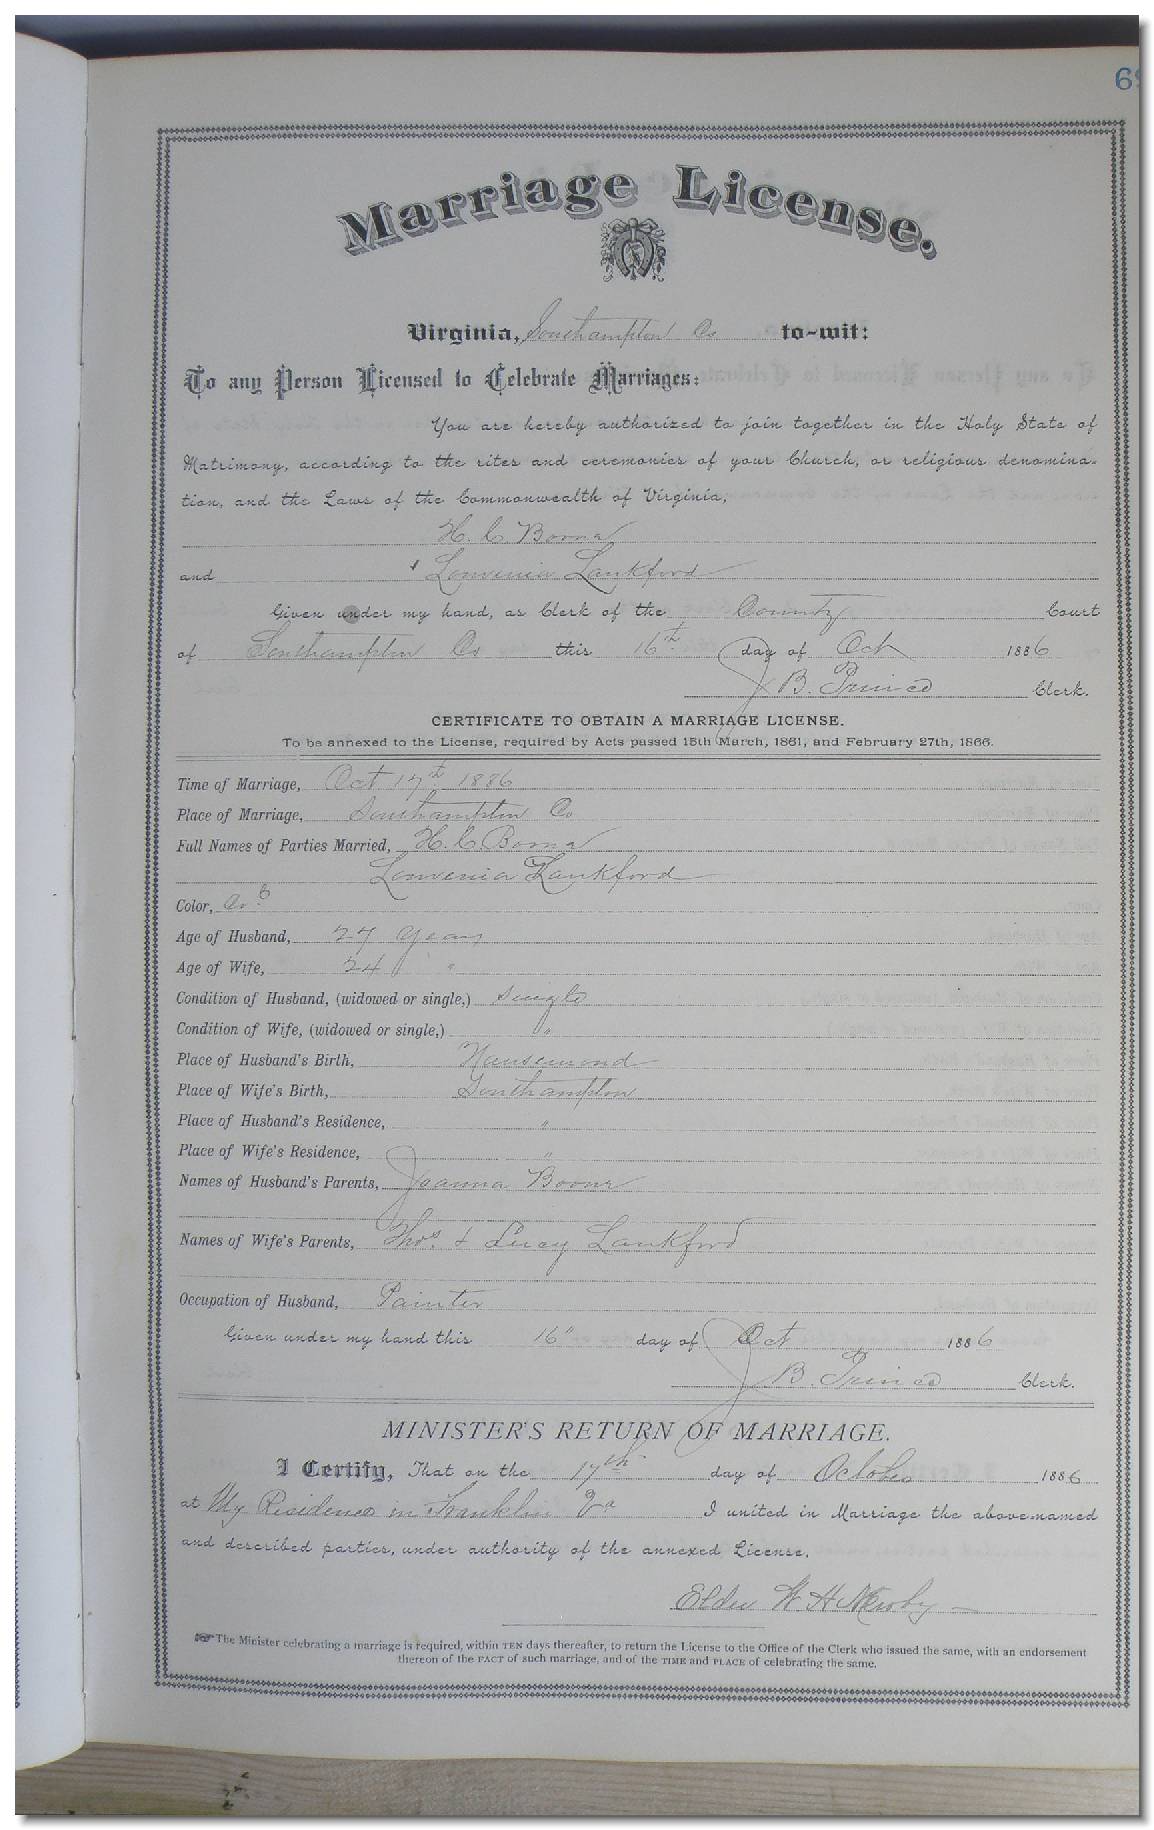 Marriage License.
Virginia, Southampton Co to-wit:
To any Person Licensed to Celebrate Marriages:
You are hereby authorized to join together in the Holy State of
Matrimony, according to the rites and ceremonies of your Church, or religious denomina-
tion, and the Laws of the Commonwealth of Virginia,
H. C. Boone
and Louvenia Lankford
Given under my hand, as Clerk of the County Court
of Southampton Co this 16th day of Oct 1886
J B. Prince Clerk.
CERTIFICATE TO OBTAIN A MARRIAGE LICENSE.
To be annexed to the License, required by Acts passed 15th March, 1861, and February 27th, 1866.
Time of Marriage, Oct 17th 1886
Place of Marriage, Southampton Co
Full Names of Parties Married, H. C. Boone
Louvenia Lankford
Color,
Age of Husband, 27 Years
Age of Wife, 24 "
Condition of Husband, (widowed or single,) Single
Condition of Wife, (widowed or single,) "
Place of Husband's Birth, Nansemond
Place of Wife's Birth, Southampton
Place of Husband's Residence, "
Place of Wife's Residence, "
Names of Husband's Parents, Joanna Boone
Names of Wife's Parents, Thos. & Lucy Lankford
Occupation of Husband, Painter
Given under my hand this 16" day of Oct 1886
J B. Prince Clerk.
MINISTER'S RETURN OF MARRIAGE.
I Certify, That on the 17th day of October 1886
at My Residence in Franklin Va I united in Marriage the above-named
and described parties, under authority of the annexed License.
Elder W H Newby
The Minister celebrating a marriage is required, within TEN days thereafter, to return the License to the Office of the Clerk who issued the same, with an endorsement
thereon of the FACT of such marriage, and of the TIME and PLACE of celebrating the same.